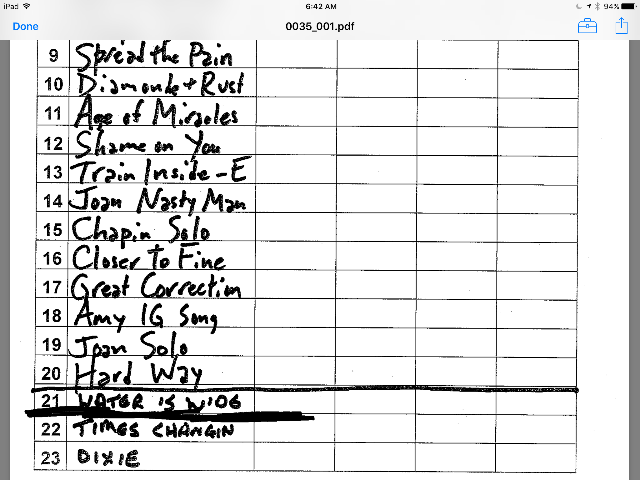 iPad 6:42 AM 94%
Done 0035_001.pdf
9 Spread the Pain
10 Diamonds + Rust
11 Age of Miracles
12 Shame on You
13 Train Inside - E
14 Joan Nasty Man
15 Chapin Solo
16 Closer To Fine
17 Great Correction
18 Amy IG Song
19 Joan Solo
20 Hard Way
21 WATER IS WIDE
22 TIMES CHANGIN
23 DIXIE